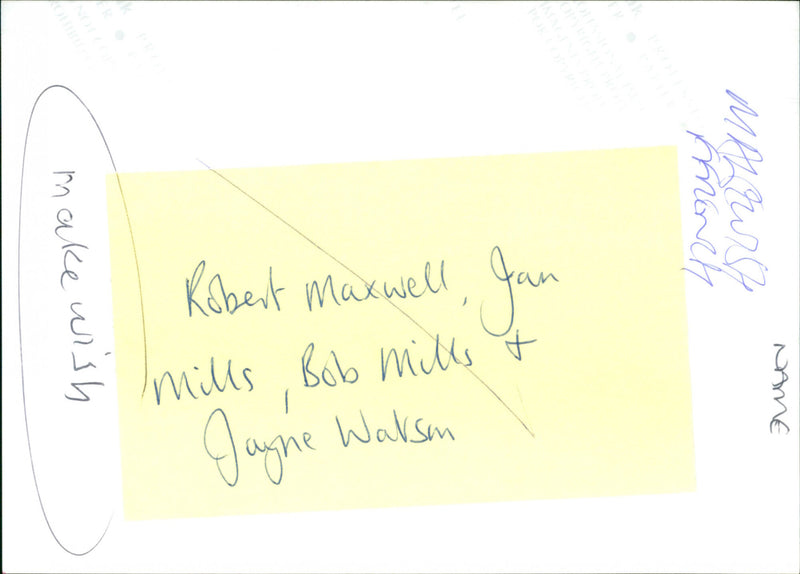 make wish
Robert Maxwell, Jan
Mills, Bob Mills &
Jayne Watson
NAME